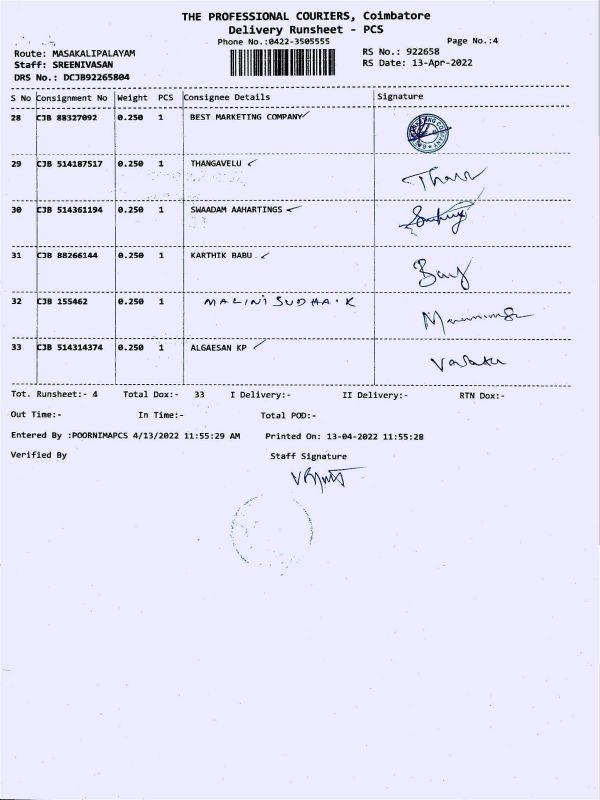 THE PROFESSIONAL COURIERS, Coimbatore
Delivery Runsheet - PCS
Phone No.:0422-3505555 Page No.:4
Route: MASAKALIPALAYAM RS No.: 922658
Staff: SREENIVASAN RS Date: 13-Apr-2022
DRS No.: DCJB92265804
S No Consignment No Weight PCS Consignee Details Signature
28 CJB 88327092 0.250 1 BEST MARKETING COMPANY
29 CJB 514187517 0.250 1 THANGAVELU
30 CJB 514361194 0.250 1 SWAADAM AAHARTINGS
31 CJB 88266144 0.250 1 KARTHIK BABU
32 CJB 155462 0.250 1 MALINI SUDHA.K
33 CJB 514314374 0.250 1 ALGAESAN KP
Tot. Runsheet:- 4 Total Dox:- 33 I Delivery:- II Delivery:- RTN Dox:-
Out Time:- In Time:- Total POD:-
Entered By :POORNIMAPCS 4/13/2022 11:55:29 AM Printed On: 13-04-2022 11:55:28
Verified By Staff Signature